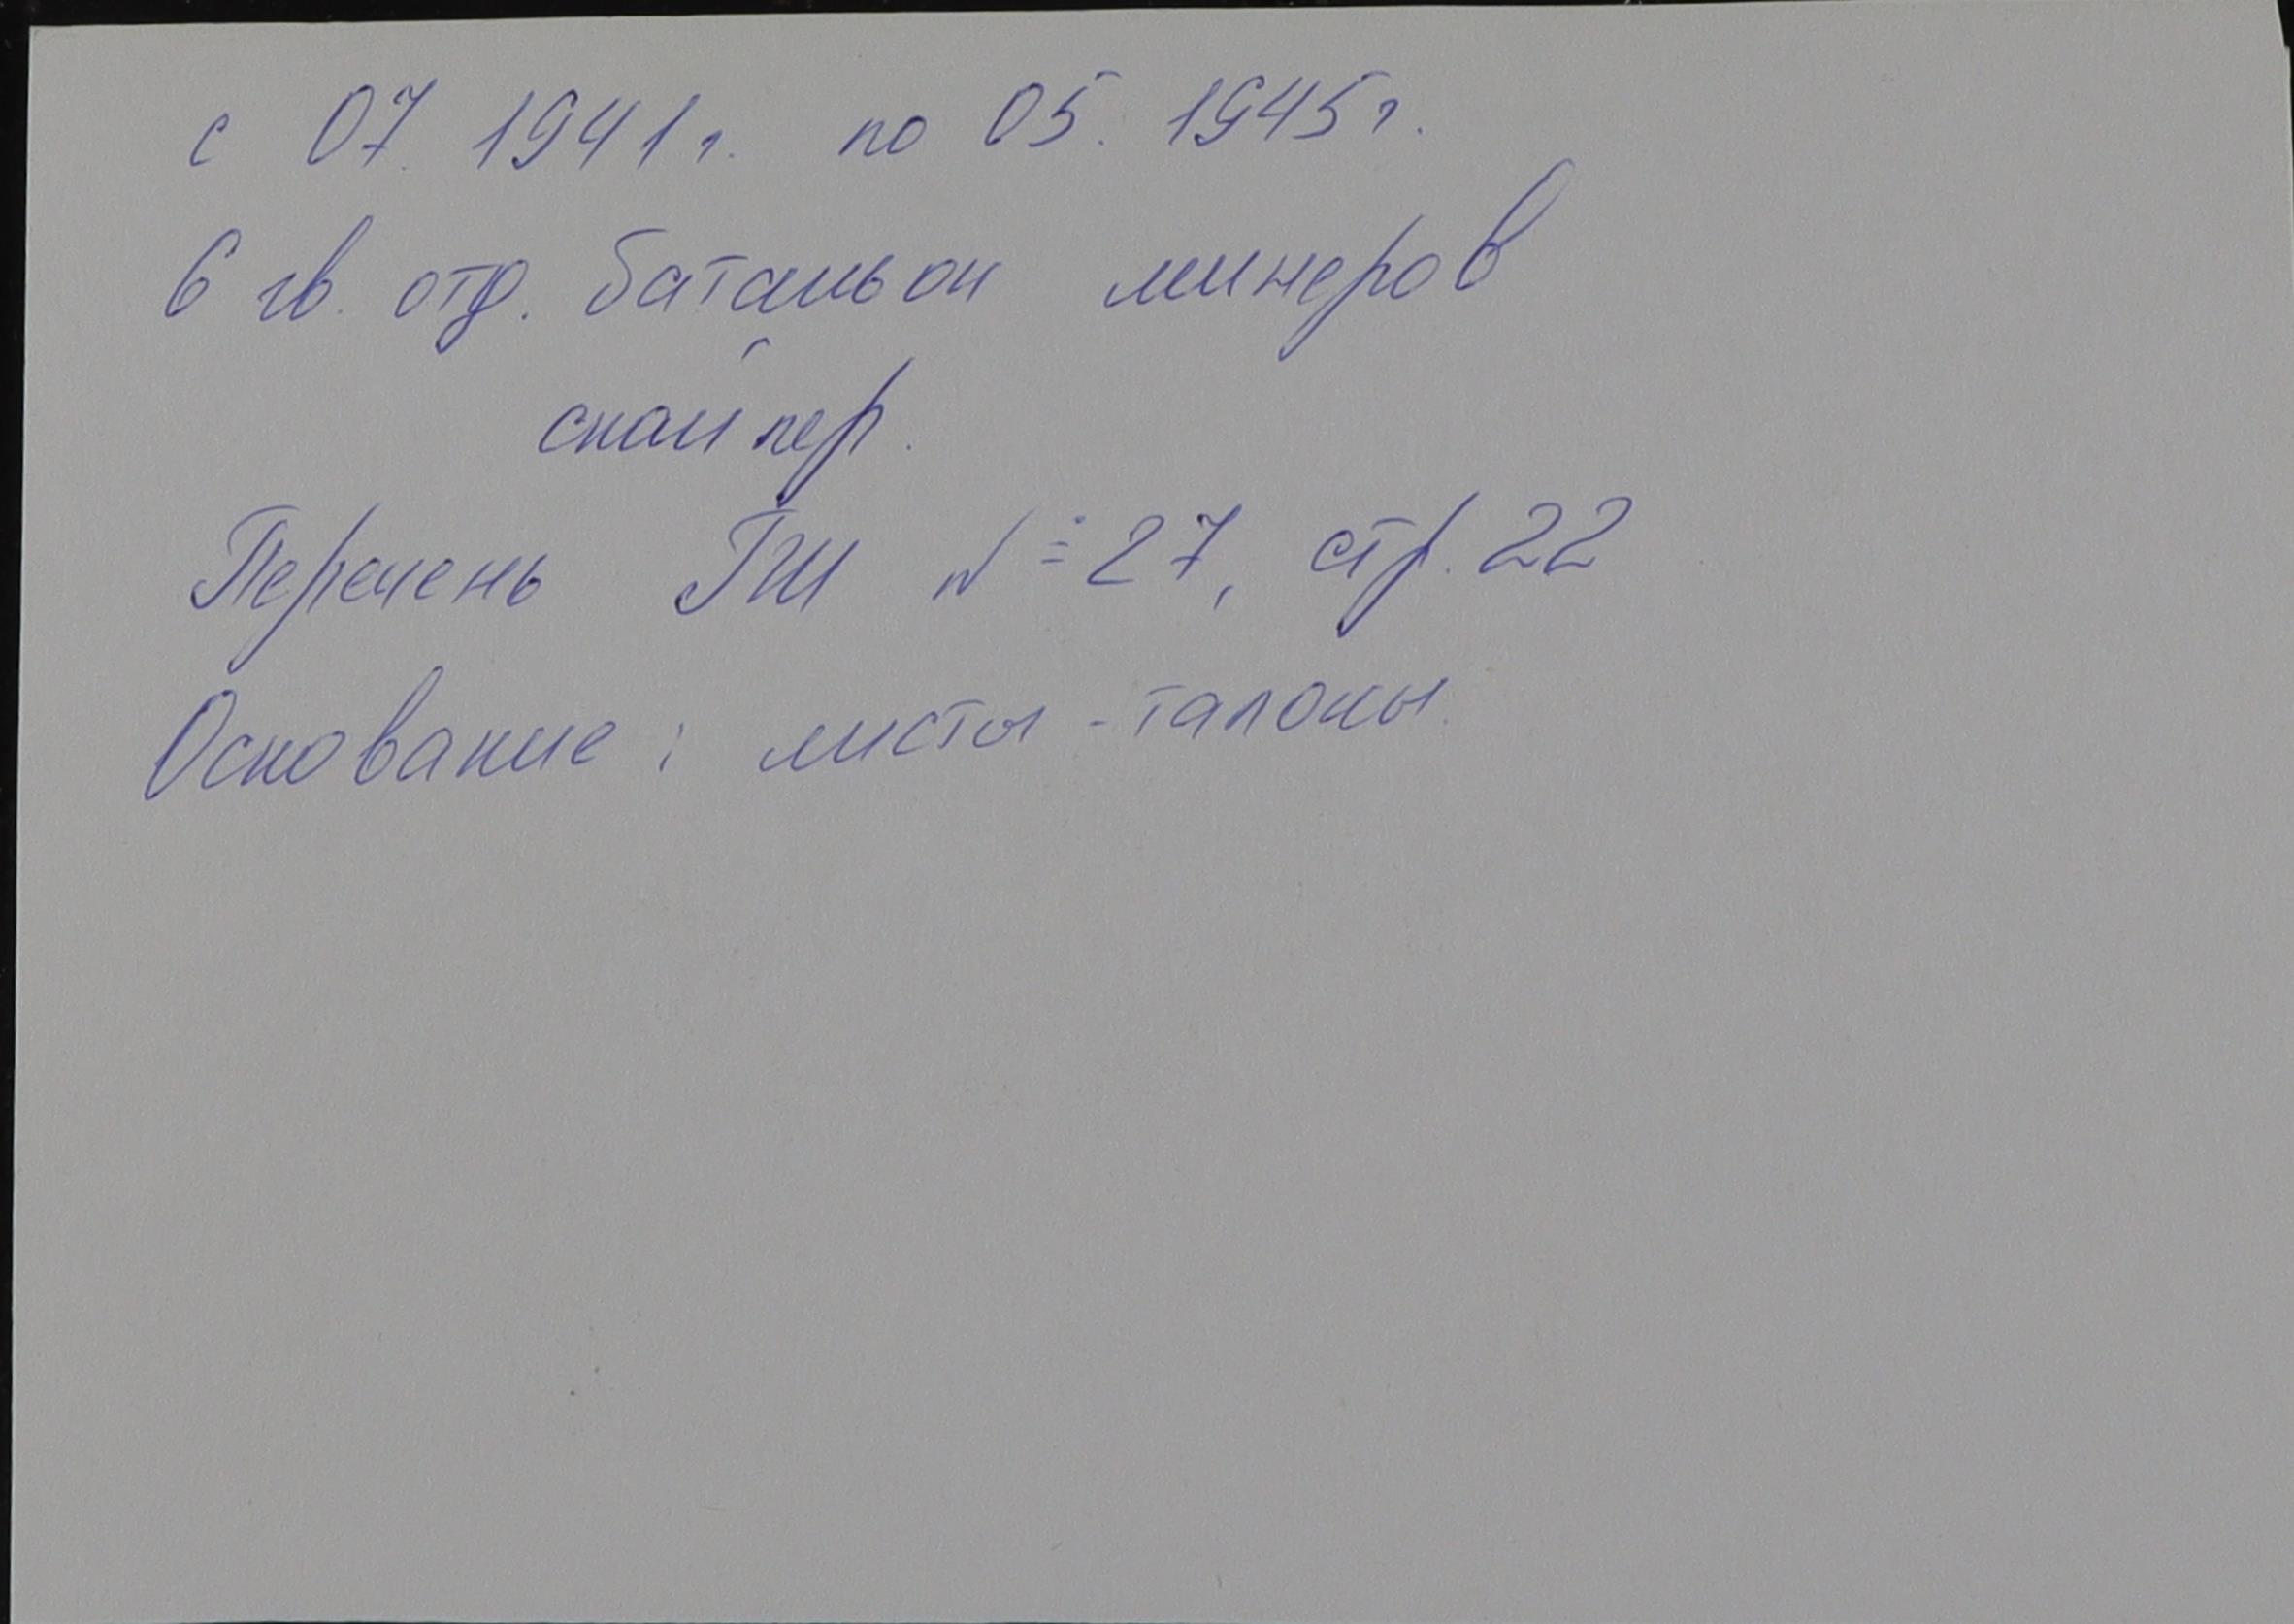 с 07. 1941 г. по 05. 1945 г.
6 гв. отд. батальон минеров
снайпер.
Перечень ГШ № 27, стр. 22
Основание: листы-талоны.